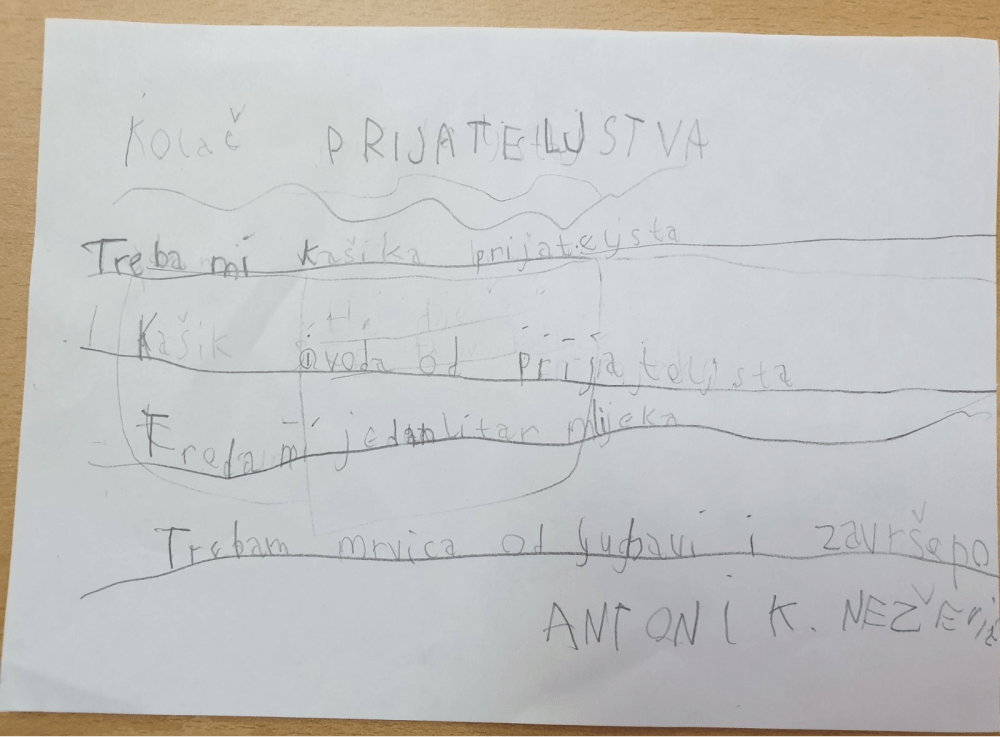 Kolač PRIJATELJSTVA
Treba mi kašika prijateljsta
Kašik voda od prijateljsta
Treda mi jedan litar mljeka
Trebam mrvica od ljugbavi i završepo
ANTONI K. NEŽVE